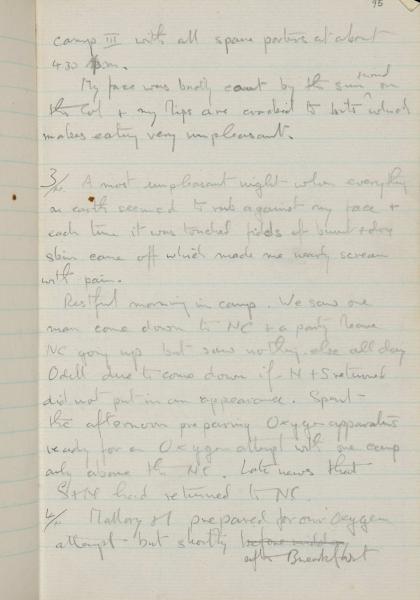 95
camp III with all spare porters at about
430 pm.
My face was badly caught by the sun + wind on
the Col + my lips are cracked to bits which
makes eating very unpleasant.
3/VI. A most unpleasant night when everything
on earth seemed to rub against my face +
each time it was touched bits of burnt + dry
skin came off which made me nearly scream
with pain.
Restful morning in camp. We saw one
man come down to NC + a party leave
NC going up but saw nothing else all day
Odell due to come down if N + S returned
did not put in an appearance. Spent
the afternoon preparing Oxygen apparatus
ready for an Oxygen attempt with one camp
only above the NC. Late news that
S + N had returned to NC.
4/VI Mallory + I prepared for our oxygen
attempt but shortly before midday
after Breakfast